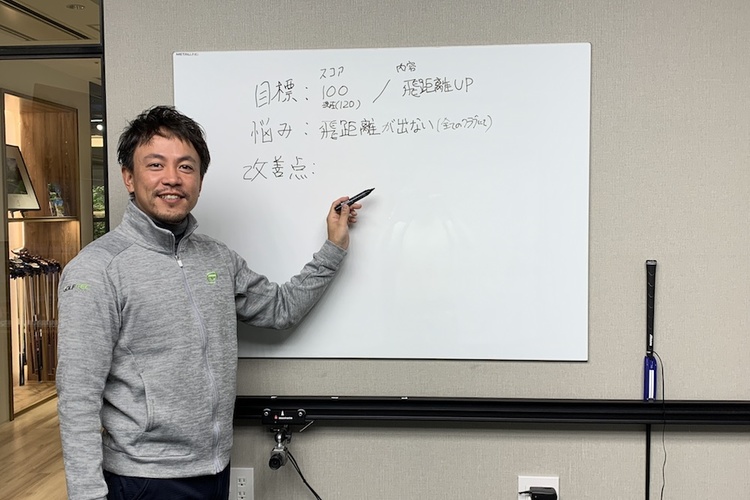 スコア 内容
目標: 100 / 飛距離UP
現在(120)
悩み: 飛距離が出ない(全てのクラブにて)
改善点:
GOLF